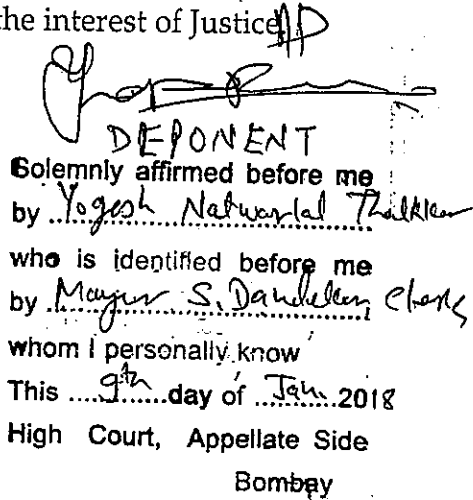 the interest of Justice
DEPONENT
Solemnly affirmed before me
by Yogesh Natwarlal Thakkar
who is identified before me
by Mayur S. Dandekar, Clerk
whom I personally know
This 9th day of Jan. 2018
High Court, Appellate Side
Bombay